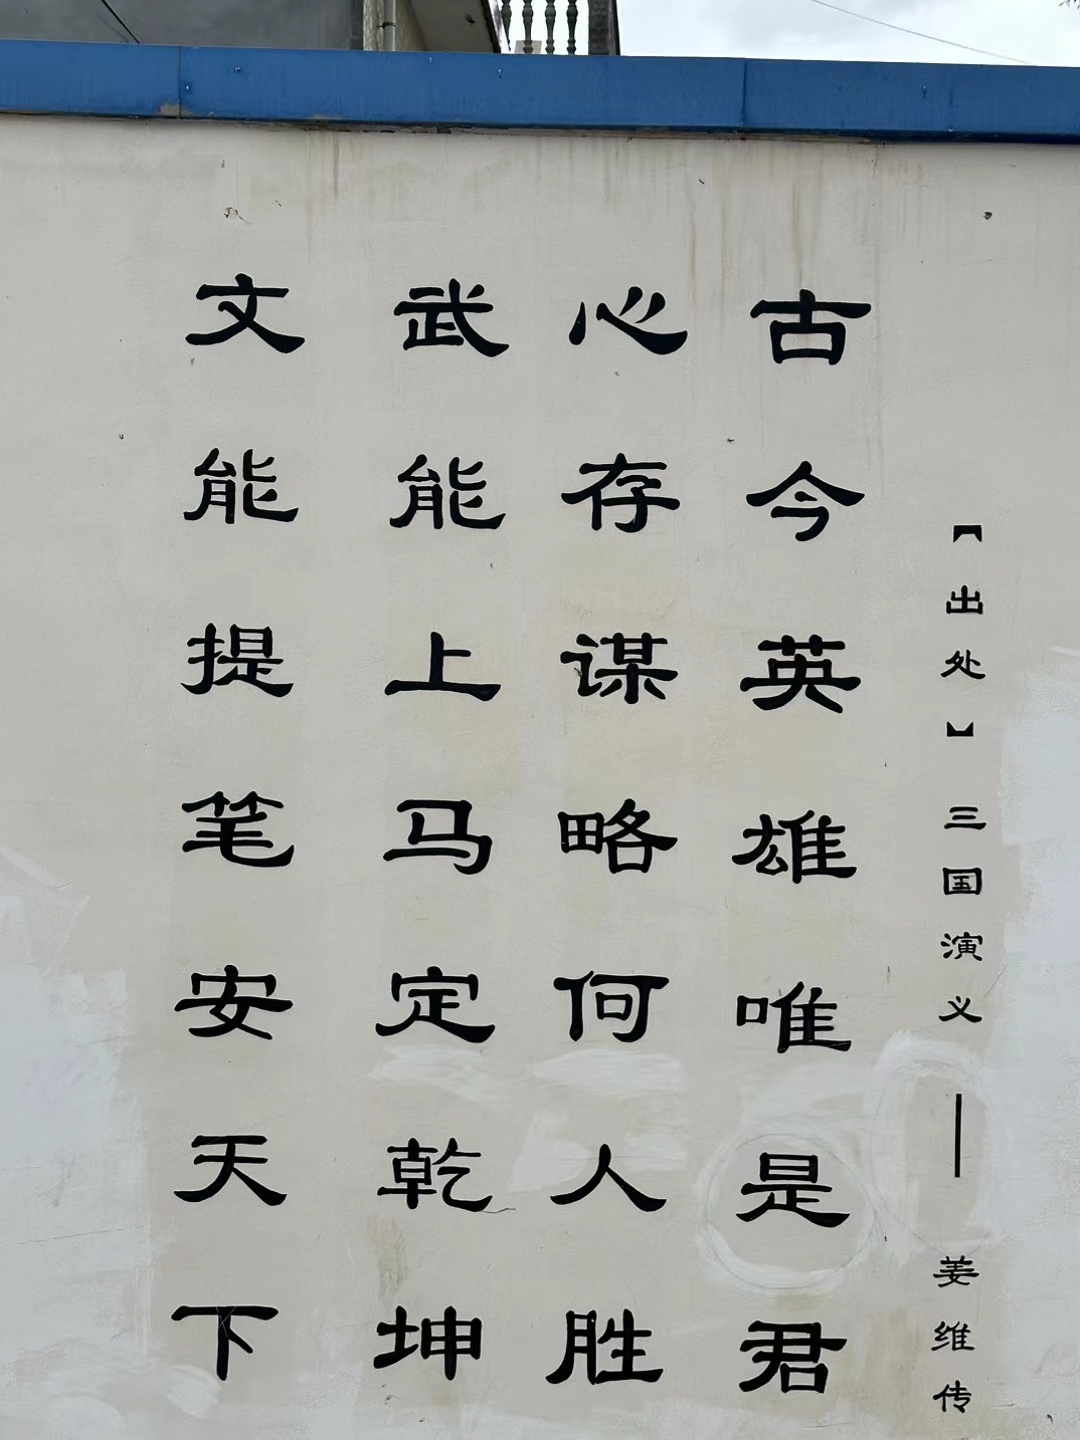 文能提笔安天下
武能上马定乾坤
心存谋略何人胜
古今英雄唯是君
【出处】三国演义——姜维传